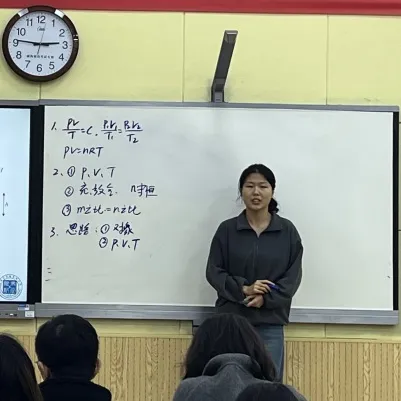 12 1 2 3 4 5 6 7 8 9 10 11
1. PV/T = C. P₁V₁/T₁ = P₂V₂/T₂
PV=nRT
2. ① P、V、T
② 充、放气: n守恒
③ m之比=n之比
3. 思路: ① 对象
② P、V、T